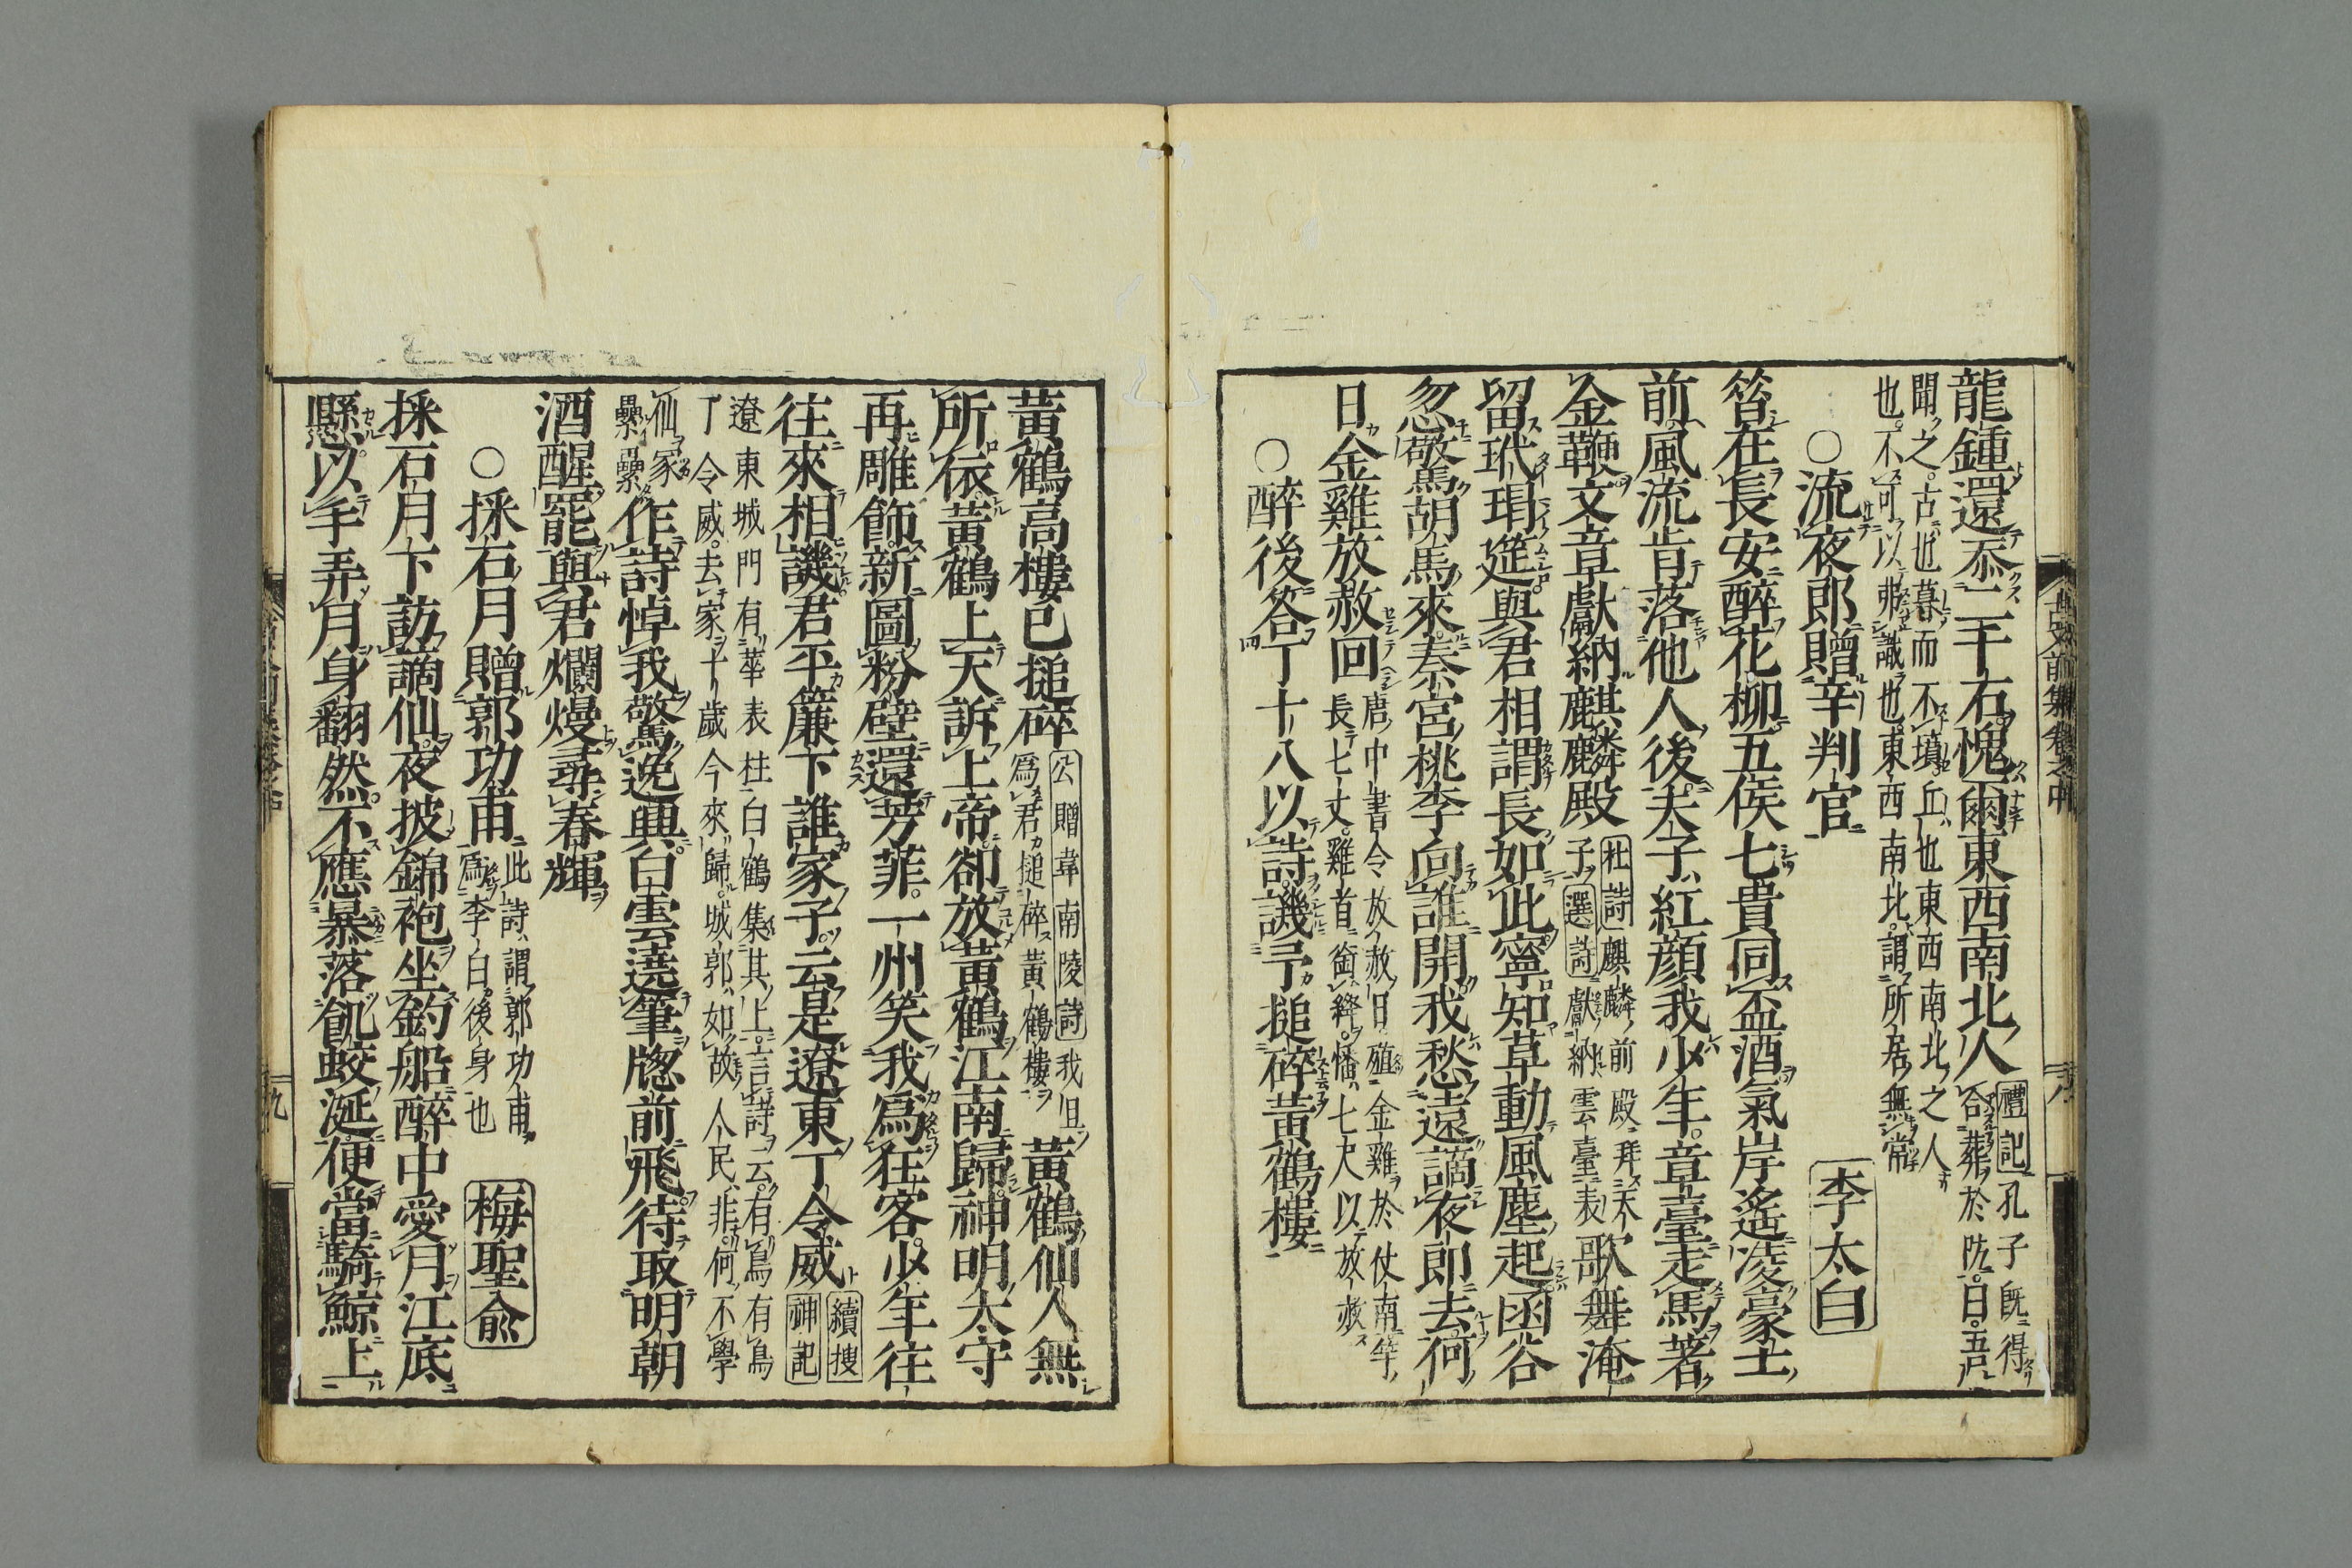 龍鍾還忝二千石愧爾東西南北人
禮記孔子既得
合葬於防曰吾
聞之古也墓而不墳丘也東西南北之人
也不可以弗識也東西南北謂所居無常
〇流夜郎贈辛判官
李太白
昔在長安醉花柳五侯七貴同盃酒氣岸遙凌豪士
前風流肯落他人後夫子紅顔我少年章臺走馬著
金鞭文章獻納麒麟殿
杜詩麒麟前殿拜天
子選詩獻納雲臺表
歌舞淹
留玳瑁筵與君相謂長如此寧知草動風塵起函谷
忽驚胡馬來秦宮桃李向誰開我愁遠謫夜郎去何
日金雞放赦回
唐中書令放赦日殖金雞於仗南竿
長七丈雞首銜絳幡七尺以放赦
〇醉後答丁十八以詩譏予搥碎黃鶴樓
黃鶴高樓已搥碎
公贈韋南陵詩我且
爲君搥碎黃鶴樓
黃鶴仙人無
所依黃鶴上天訴上帝卻放黃鶴江南歸神明太守
再雕飾新圖粉壁還芳菲一州笑我爲狂客少年往
往來相譏君平簾下誰家子云是遼東丁令威
續搜
神記
遼東城門有華表柱白鶴集其上言詩云有鳥有鳥
丁令威去家千歲今來歸城郭如故人民非何不學
仙冢
纍纍
作詩悼我驚逸興白雲遶筆牕前飛待取明朝
酒醒罷與君爛熳尋春輝
〇採石月贈郭功甫
此詩謂郭功甫
爲李白後身也
梅聖兪
採石月下訪謫仙夜披錦袍坐釣船醉中愛月江底
懸以手弄月身翻然不應暴落飢蛟涎便當騎鯨上
古文前集卷之中
八
九